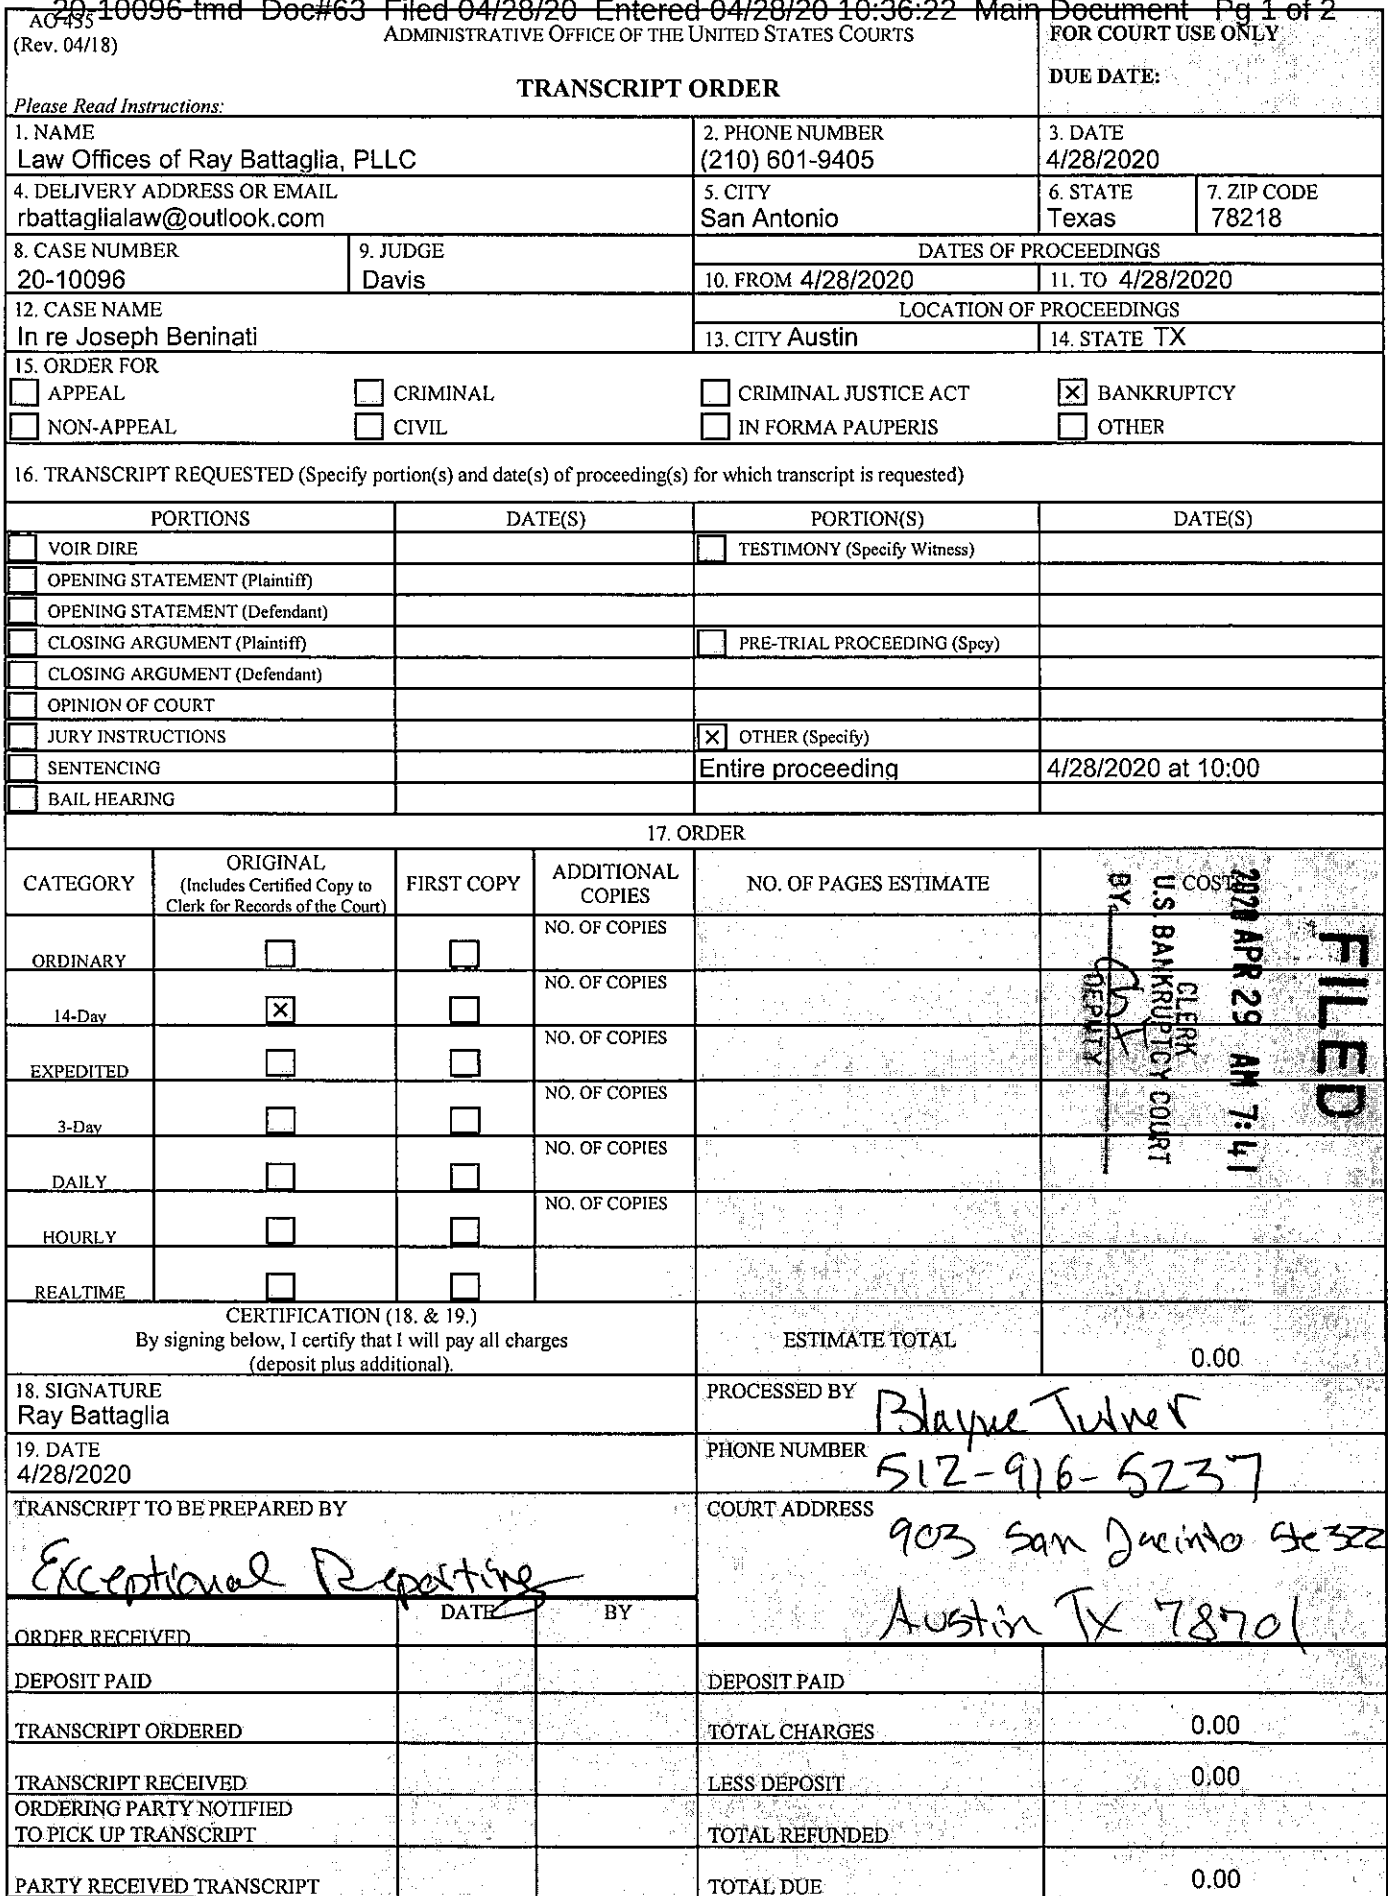 20-10096-tmd Doc#63 Filed 04/28/20 Entered 04/28/20 10:36:22 Main Document Pg 1 of 2
AO 435
(Rev. 04/18)
ADMINISTRATIVE OFFICE OF THE UNITED STATES COURTS
FOR COURT USE ONLY
DUE DATE:
TRANSCRIPT ORDER
Please Read Instructions:
1. NAME
Law Offices of Ray Battaglia, PLLC
2. PHONE NUMBER
(210) 601-9405
3. DATE
4/28/2020
4. DELIVERY ADDRESS OR EMAIL
rbattaglialaw@outlook.com
5. CITY
San Antonio
6. STATE
Texas
7. ZIP CODE
78218
8. CASE NUMBER
20-10096
9. JUDGE
Davis
DATES OF PROCEEDINGS
10. FROM 4/28/2020
11. TO 4/28/2020
12. CASE NAME
In re Joseph Beninati
LOCATION OF PROCEEDINGS
13. CITY Austin
14. STATE TX
15. ORDER FOR
APPEAL
CRIMINAL
CRIMINAL JUSTICE ACT
X BANKRUPTCY
NON-APPEAL
CIVIL
IN FORMA PAUPERIS
OTHER
16. TRANSCRIPT REQUESTED (Specify portion(s) and date(s) of proceeding(s) for which transcript is requested)
PORTIONS DATE(S) PORTION(S) DATE(S)
VOIR DIRE
TESTIMONY (Specify Witness)
OPENING STATEMENT (Plaintiff)
OPENING STATEMENT (Defendant)
CLOSING ARGUMENT (Plaintiff)
PRE-TRIAL PROCEEDING (Spcy)
CLOSING ARGUMENT (Defendant)
OPINION OF COURT
JURY INSTRUCTIONS
X OTHER (Specify)
SENTENCING
Entire proceeding
4/28/2020 at 10:00
BAIL HEARING
17. ORDER
CATEGORY
ORIGINAL
(Includes Certified Copy to
Clerk for Records of the Court)
FIRST COPY
ADDITIONAL
COPIES
NO. OF PAGES ESTIMATE
COSTS
ORDINARY
NO. OF COPIES
14-Day
X
NO. OF COPIES
EXPEDITED
NO. OF COPIES
3-Day
NO. OF COPIES
DAILY
NO. OF COPIES
HOURLY
NO. OF COPIES
REALTIME
FILED
2020 APR 29 AM 7:41
CLERK
U.S. BANKRUPTCY COURT
BY
DEPUTY
CERTIFICATION (18. & 19.)
By signing below, I certify that I will pay all charges
(deposit plus additional).
ESTIMATE TOTAL
0.00
18. SIGNATURE
Ray Battaglia
PROCESSED BY Blayne Turner
19. DATE
4/28/2020
PHONE NUMBER 512-916-5237
TRANSCRIPT TO BE PREPARED BY
Exceptional Reporting
COURT ADDRESS
903 San Jacinto Ste 322
Austin TX 78701
DATE BY
ORDER RECEIVED
DEPOSIT PAID
DEPOSIT PAID
TRANSCRIPT ORDERED
TOTAL CHARGES
0.00
TRANSCRIPT RECEIVED
LESS DEPOSIT
0.00
ORDERING PARTY NOTIFIED
TO PICK UP TRANSCRIPT
TOTAL REFUNDED
PARTY RECEIVED TRANSCRIPT
TOTAL DUE
0.00